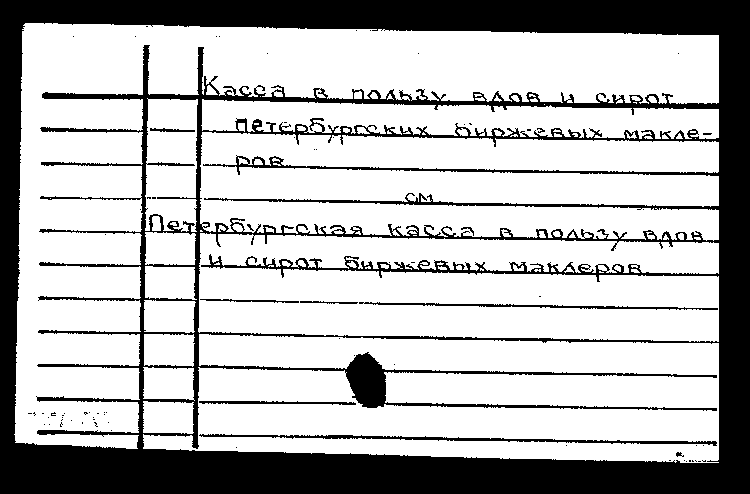 Касса в пользу вдов и сирот
петербургских биржевых макле-
ров
см.
Петербургская касса в пользу вдов
и сирот биржевых маклеров.